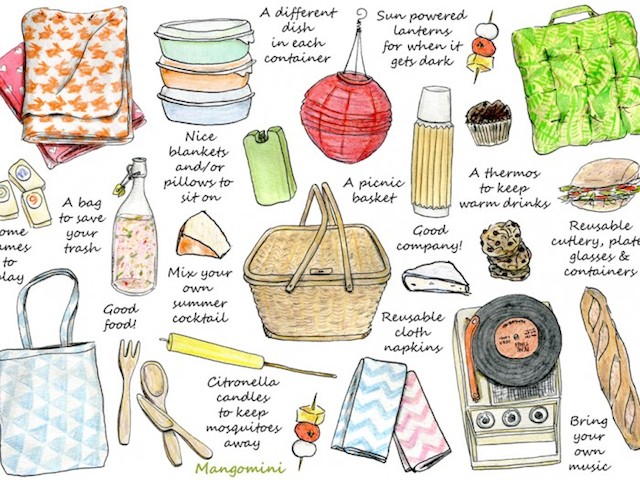 A different
dish
in each
container
Sun powered
lanterns
for when it
gets dark
Nice
blankets
and/or
pillows to
sit on
A picnic
basket
A thermos
to keep
warm drinks
A bag
to save
your
trash
to
Good
company!
Reusable
cutlery,
glasses &
containers
Mix your
own
summer
cocktail
Good
food!
Reusable
cloth
napkins
Citronella
candles
to keep
mosquitoes
away
Bring
your
own
music
Mangomini